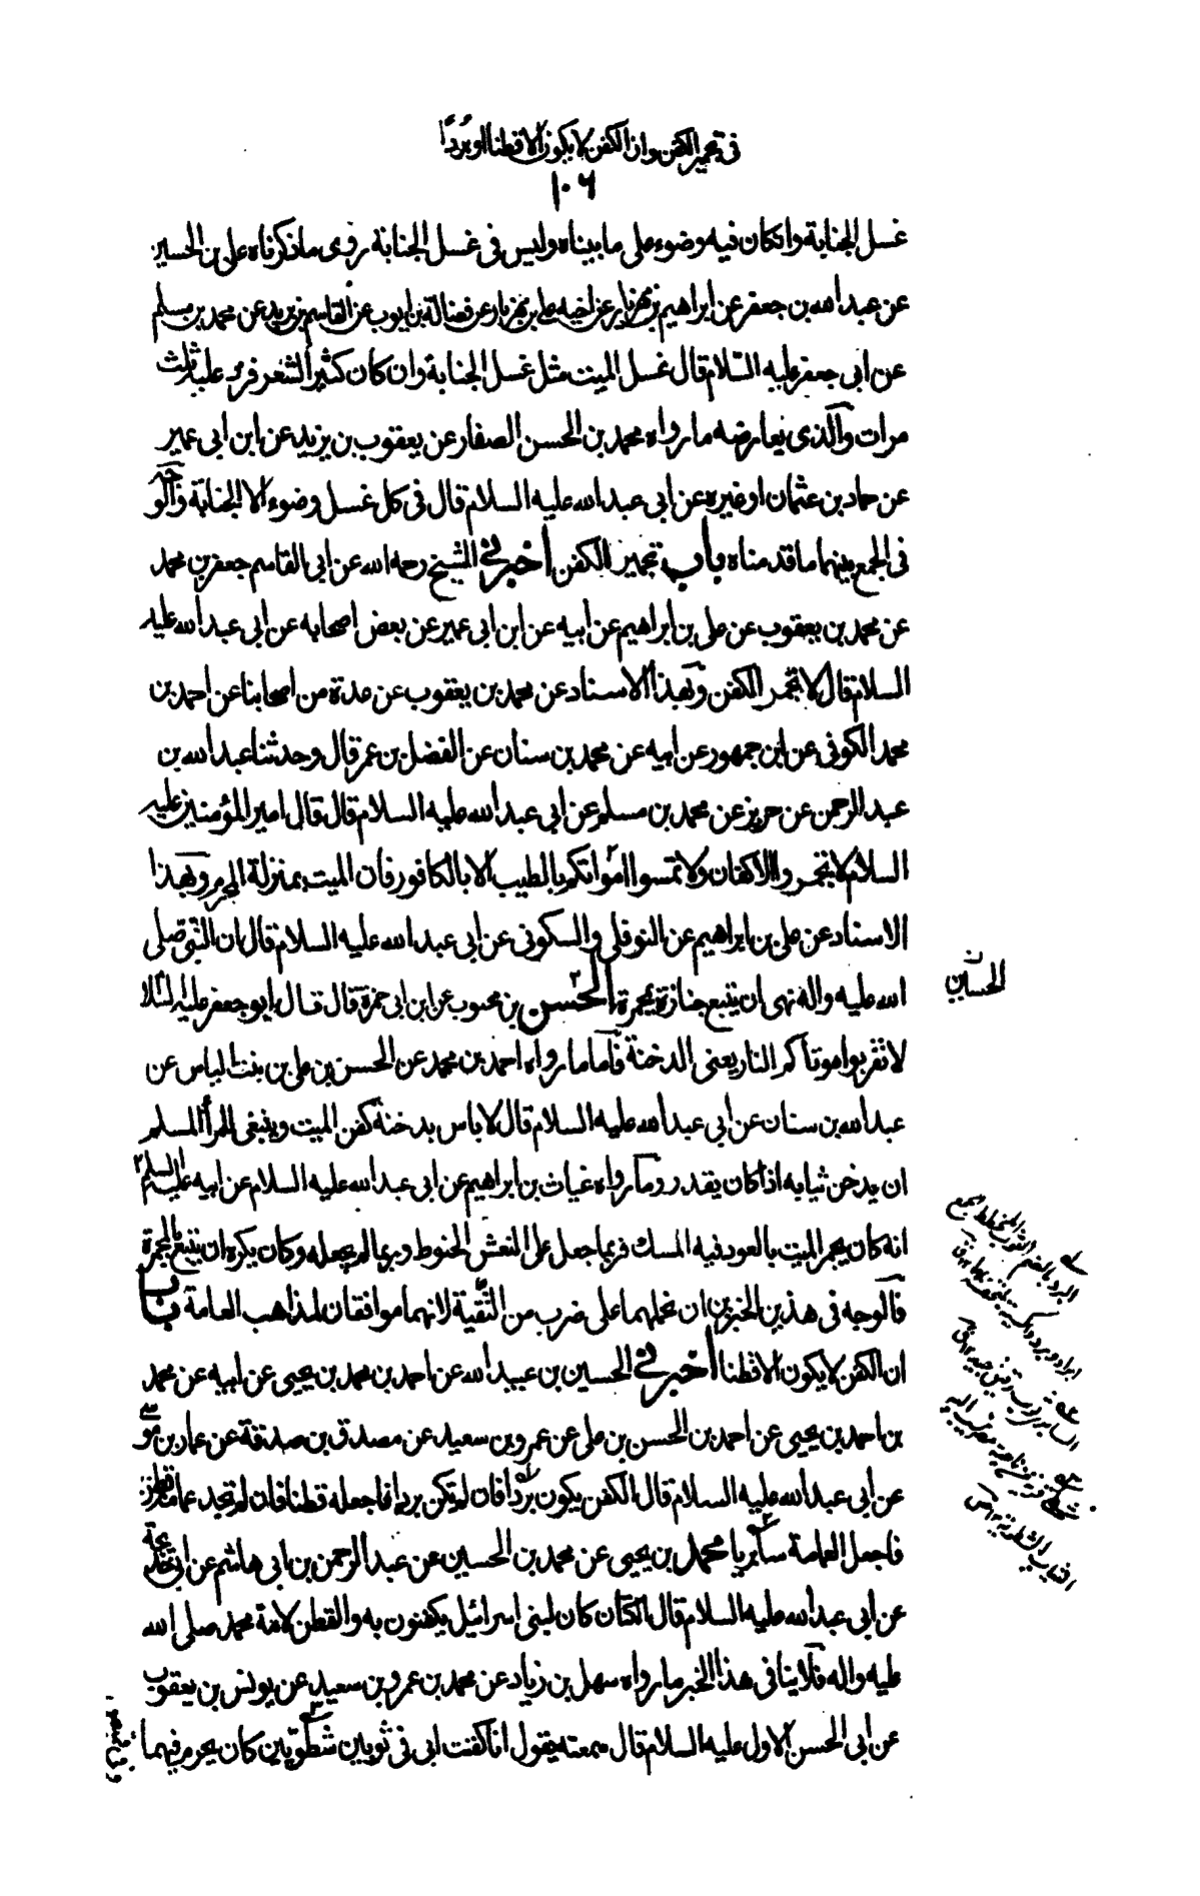 في تجمير الكفن وان الكفن لا يكون الا قطنا او بردا
١٠٦
غسل الجنابة وان كان فيه وضوء على ما بيناه وليس في غسل الجنابة روى ما ذكرناه علي بن الحسين
عن عبد الله بن جعفر عن ابراهيم بن مهزيار عن اخيه علي بن مهزيار عن فضالة بن ايوب عن القاسم بن بريد عن محمد بن مسلم
عن ابي جعفر عليه السلام قال غسل الميت مثل غسل الجنابة وان كان كثير الشعر فرد عليه ثلث
مرات والذي يعارضه ما رواه محمد بن الحسن الصفار عن يعقوب بن يزيد عن ابن ابي عمير
عن حماد بن عثمان او غيره عن ابي عبد الله عليه السلام قال في كل غسل وضوء الا الجنابة والوجه
في الجمع بينهما ما قدمناه باب تجمير الكفن أخبرني الشيخ رحمه الله عن ابي القاسم جعفر بن محمد
عن محمد بن يعقوب عن علي بن ابراهيم عن ابيه عن ابن ابي عمير عن بعض اصحابه عن ابي عبد الله عليه
السلام قال لا تجمر الكفن وبهذا الاسناد عن محمد بن يعقوب عن عدة من اصحابنا عن احمد بن
محمد الكوفي عن ابن جمهور عن ابيه عن محمد بن سنان عن المفضل بن عمر قال وحدثنا عبد الله بن
عبد الرحمن عن حريز عن محمد بن مسلم عن ابي عبد الله عليه السلام قال قال امير المؤمنين عليه
السلام لا تجمروا الاكفان ولا تمسوا امواتكم بالطيب الا بالكافور فان الميت بمنزلة المحرم وبهذا
الاسناد عن علي بن ابراهيم عن النوفلي والسكوني عن ابي عبد الله عليه السلام قال ان النبي صلى
الله عليه واله نهى ان يتبع جنازة بمجمرة الحسن بن محبوب عن ابن ابي حمزة قال قال ابو جعفر عليه السلام
الحسين
لا تقربوا موتاكم النار يعني الدخنة فاما ما رواه احمد بن محمد عن الحسن بن علي بن بنت الياس عن
عبد الله بن سنان عن ابي عبد الله عليه السلام قال لا باس بدخنة كفن الميت وينبغي للمرأ المسلم
ان يدخن ثيابه اذا كان يقدر وما رواه غياث بن ابراهيم عن ابي عبد الله عليه السلام عن ابيه عليه السلم
انه كان يجمر الميت بالعود فيه المسك فربما جعل على النعش الحنوط وربما لم يجعله وكان يكره ان يتبع الميت بالمجمرة
فالوجه في هذين الخبرين ان نحملهما على ضرب من التقية لانهما موافقان لمذاهب العامة باب
ان الكفن لا يكون الا قطنا أخبرني الحسين بن عبيد الله عن احمد بن محمد بن يحيى عن ابيه عن محمد
بن احمد بن يحيى عن احمد بن الحسن بن علي عن عمرو بن سعيد عن مصدق بن صدقة عن عمار بن موسى
عن ابي عبد الله عليه السلام قال الكفن يكون بردا فان لم تكن بردا فاجعله قطنا فان لم تجد عمامة قطن
فاجعل العمامة سابريا محمد بن يحيى عن محمد بن الحسين عن عبد الرحمن بن ابي هاشم عن ابي خديجة
عن ابي عبد الله عليه السلام قال الكتان كان لبني اسرائيل يكفنون به والقطن لامة محمد صلى الله
عليه واله فلا ينافي هذا الخبر ما رواه سهل بن زياد عن محمد بن عمرو بن سعيد عن يونس بن يعقوب
عن ابي الحسن الاول عليه السلام قال سمعته يقول انا كفنت ابي في ثوبين شطويين كان يحرم فيهما